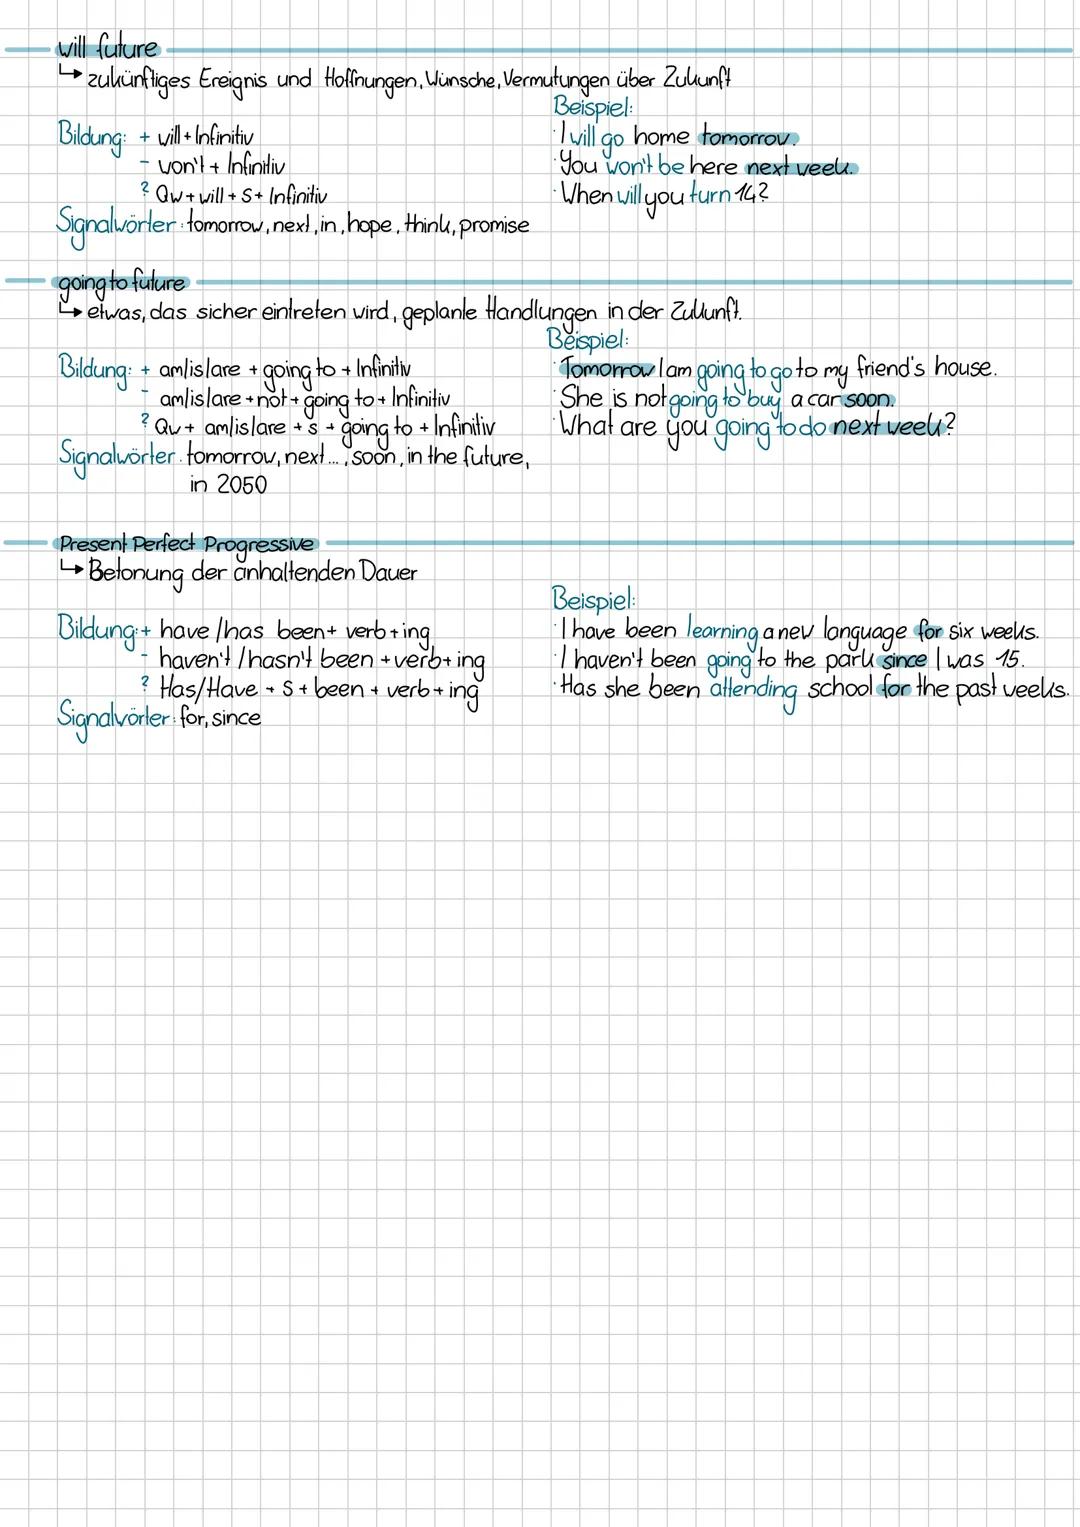 will future
↳ zukünftiges Ereignis und Hoffnungen, Wünsche, Vermutungen über Zukunft
Beispiel:
Bildung: + will + Infinitiv
· I will go home tomorrow.
- won't + Infinitiv
· You won't be here next week.
? Qw + will + S + Infinitiv
· When will you turn 14?
Signalwörter: tomorrow, next, in, hope, think, promise
going to future
↳ etwas, das sicher eintreten wird, geplante Handlungen in der Zukunft.
Beispiel:
Bildung: + am/is/are + going to + Infinitiv
· Tomorrow I am going to go to my friend's house.
- am/is/are + not + going to + Infinitiv
· She is not going to buy a car soon.
? Qw + am/is/are + s + going to + Infinitiv
· What are you going to do next week?
Signalwörter: tomorrow, next..., soon, in the future,
in 2050
Present Perfect Progressive
↳ Betonung der anhaltenden Dauer
Beispiel:
Bildung: + have / has been + verb + ing
· I have been learning a new language for six weeks.
- haven't / hasn't been + verb + ing
· I haven't been going to the park since I was 15.
? Has/Have + S + been + verb + ing
· Has she been attending school for the past weeks.
Signalwörter: for, since